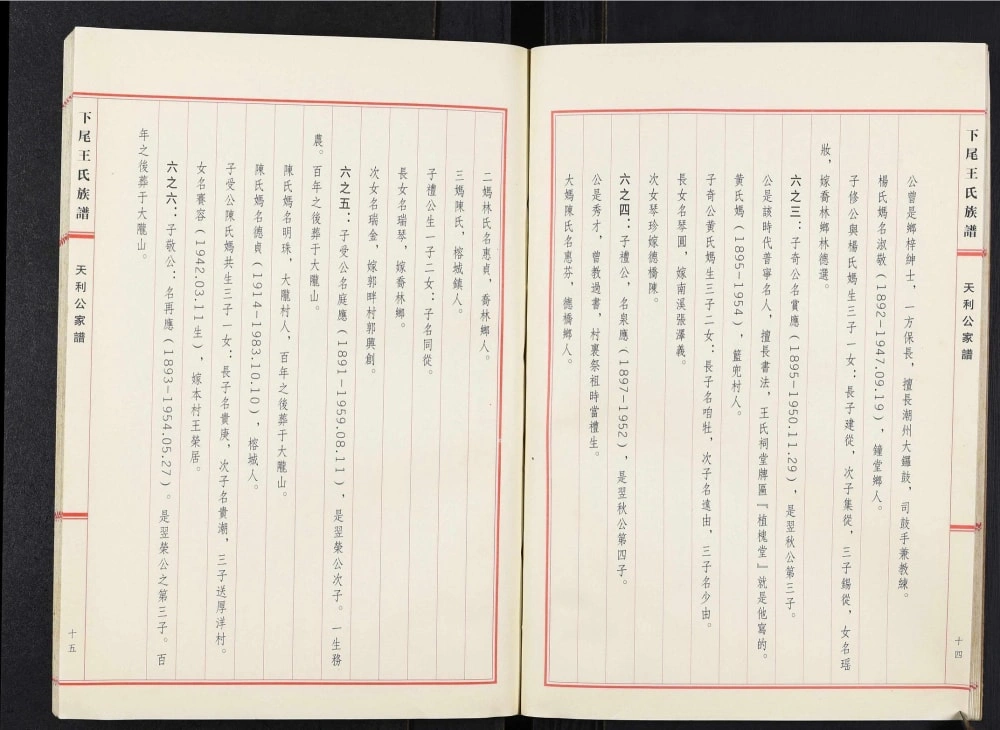 下尾王氏族譜
天利公家譜
十四
公曾是鄉梓紳士，一方保長，擅長潮州大鑼鼓，司鼓手兼教練。
楊氏媽名淑敬（1892-1947.09.19），鐘堂鄉人。
子修公與楊氏媽生三子一女：長子建從，次子集從，三子錫從，女名瑶
妝，嫁喬林鄉林德選。
六之三：子奇公名賞應（1895-1950.11.29），是翌秋公第三子。
公是該時代普寧名人，擅長書法，王氏祠堂牌匾『植槐堂』就是他寫的。
黄氏媽（1895-1954），籃兜村人。
子奇公黄氏媽生三子二女：長子名咱牡，次子名遠由，三子名少由。
長女名琴圓，嫁南溪張澤義。
次女琴珍嫁德橋陳。
六之四：子禮公，名泉應（1897-1952），是翌秋公第四子。
公是秀才，曾教過書，村裏祭祖時當禮生。
大媽陳氏名惠芬，德橋鄉人。
二媽林氏名惠貞，喬林鄉人。
三媽陳氏，榕城鎮人。
子禮公生一子二女：子名同從。
長女名瑞琴，嫁喬林鄉。
次女名瑞金，嫁郭畔村郭興創。
六之五：子受公名庭應（1891-1959.08.11），是翌榮公次子。一生務
農。百年之後葬于大隴山。
陳氏媽名明珠，大隴村人，百年之後葬于大隴山。
陳氏媽名德貞（1914-1983.10.10），榕城人。
子受公陳氏媽共生三子一女：長子名貴庚，次子名貴潮，三子送厚洋村。
女名賽容（1942.03.11生），嫁本村王榮居。
六之六：子敬公：名再應（1893-1954.05.27）。是翌榮公之第三子。百
年之後葬于大隴山。
下尾王氏族譜
天利公家譜
十五